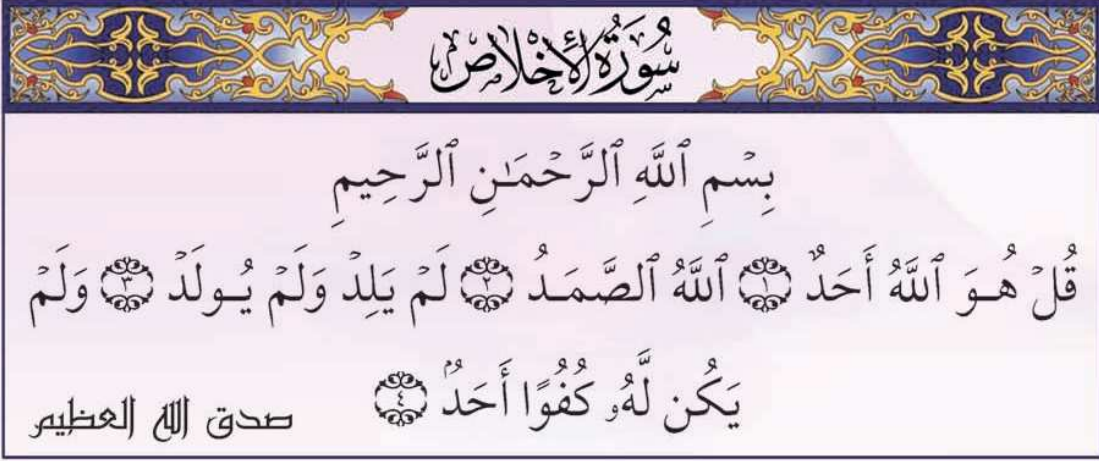 سُورَةُ الإِخْلَاصِ
بِسْمِ ٱللَّهِ ٱلرَّحْمَـٰنِ ٱلرَّحِيمِ
قُلْ هُـوَ ٱللَّهُ أَحَدٌ ١ ٱللَّهُ ٱلصَّمَـدُ ٢ لَمْ يَلِدْ وَلَمْ يُـولَدْ ٣ وَلَمْ
يَكُن لَّهُۥ كُفُوًا أَحَدٌۢ ٤
صدق الله العظيم